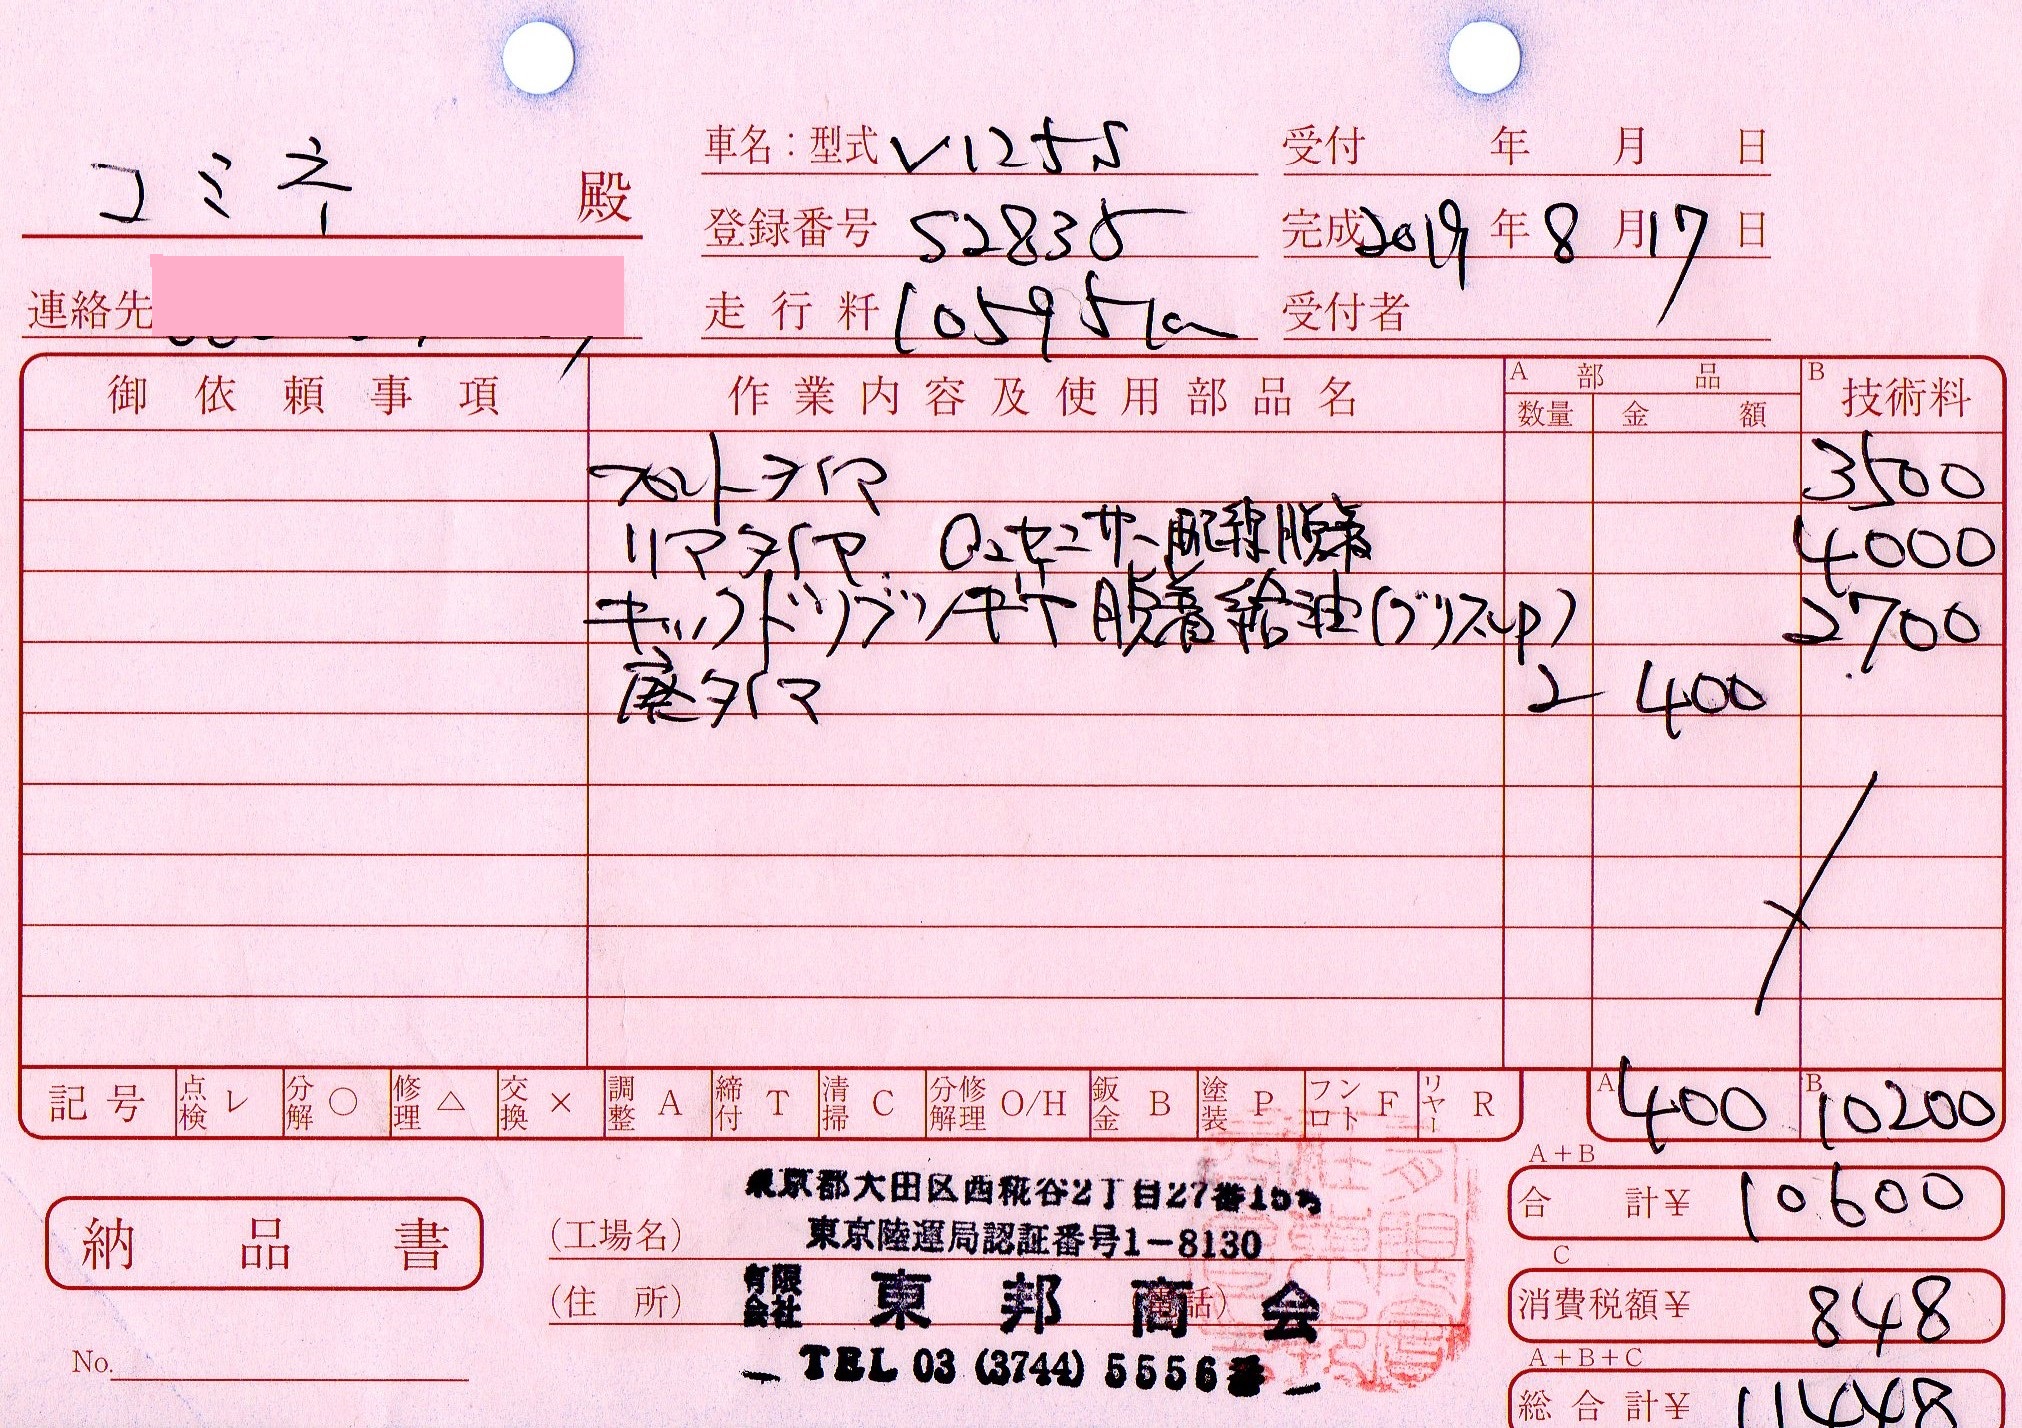 コミネ 殿
連絡先
車名：型式 V125S
登録番号 52835
走行粁 10595km
受付 年 月 日
完成 2019 年 8 月 17 日
受付者
御依頼事項 作業内容及使用部品名 A 部品 数量 金額 B 技術料
フロントタイヤ 3500
リヤタイヤ O2センサー配線脱着 4000
キックドリブンギヤ脱着給油(グリスup) 2700
廃タイヤ 2 400
記号 点検 レ 分解 ○ 修理 △ 交換 × 調整 A 締付 T 清掃 C 分解修理 O/H 鈑金 B 塗装 P フロント F リヤー R
A 400 B 10200
A+B
合計¥ 10600
C
消費税額¥ 848
A+B+C
総合計¥ 11448
納品書
No.
(工場名)
(住所)
東京都大田区西糀谷2丁目27番15号
東京陸運局認証番号1-8130
有限会社 東邦商会
TEL 03 (3744) 5556番